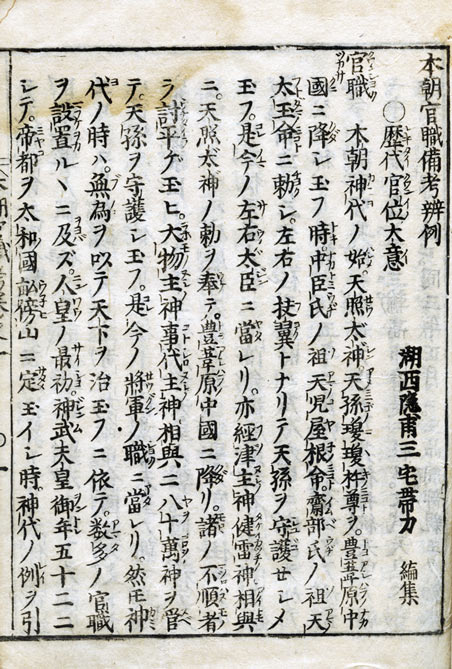 本朝官職備考辨例
○歴代官位大意
湖西隠甫三宅帯刀 編集
官職 本朝神代ノ始。天照太神。天孫瓊瓊杵尊ヲ。豊葦原中
國ニ降シ玉フ時。中臣氏ノ祖天児屋根命。齋部氏ノ祖天
太玉命ニ勅シ。左右ノ扶翼トナリテ天孫ヲ守護セシメ
玉フ。是今ノ左右大臣ニ當レリ。亦經津主神健雷神相與
ニ。天照太神ノ勅ヲ奉テ。豊葦原中國ニ降リ。諸ノ不順者
ヲ討平ゲ玉ヒ。大物主神事代主神相與ニ八十萬神ヲ管
テ。天孫ヲ守護シ玉フ。是今ノ將軍ノ職ニ當レリ。然モ神
代ノ時ハ。無為ヲ以テ天下ヲ治玉フニ依テ。数多ノ官職
ヲ設置ルヽニ及ズ。人皇ノ最初。神武天皇御年五十二ニ
シテ。帝都ヲ太和國畝傍山ニ定玉イシ時。神代ノ例ヲ引